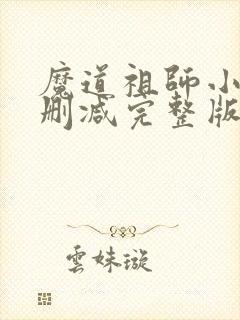 魔道祖師小
刪减完整版
雲妹璇